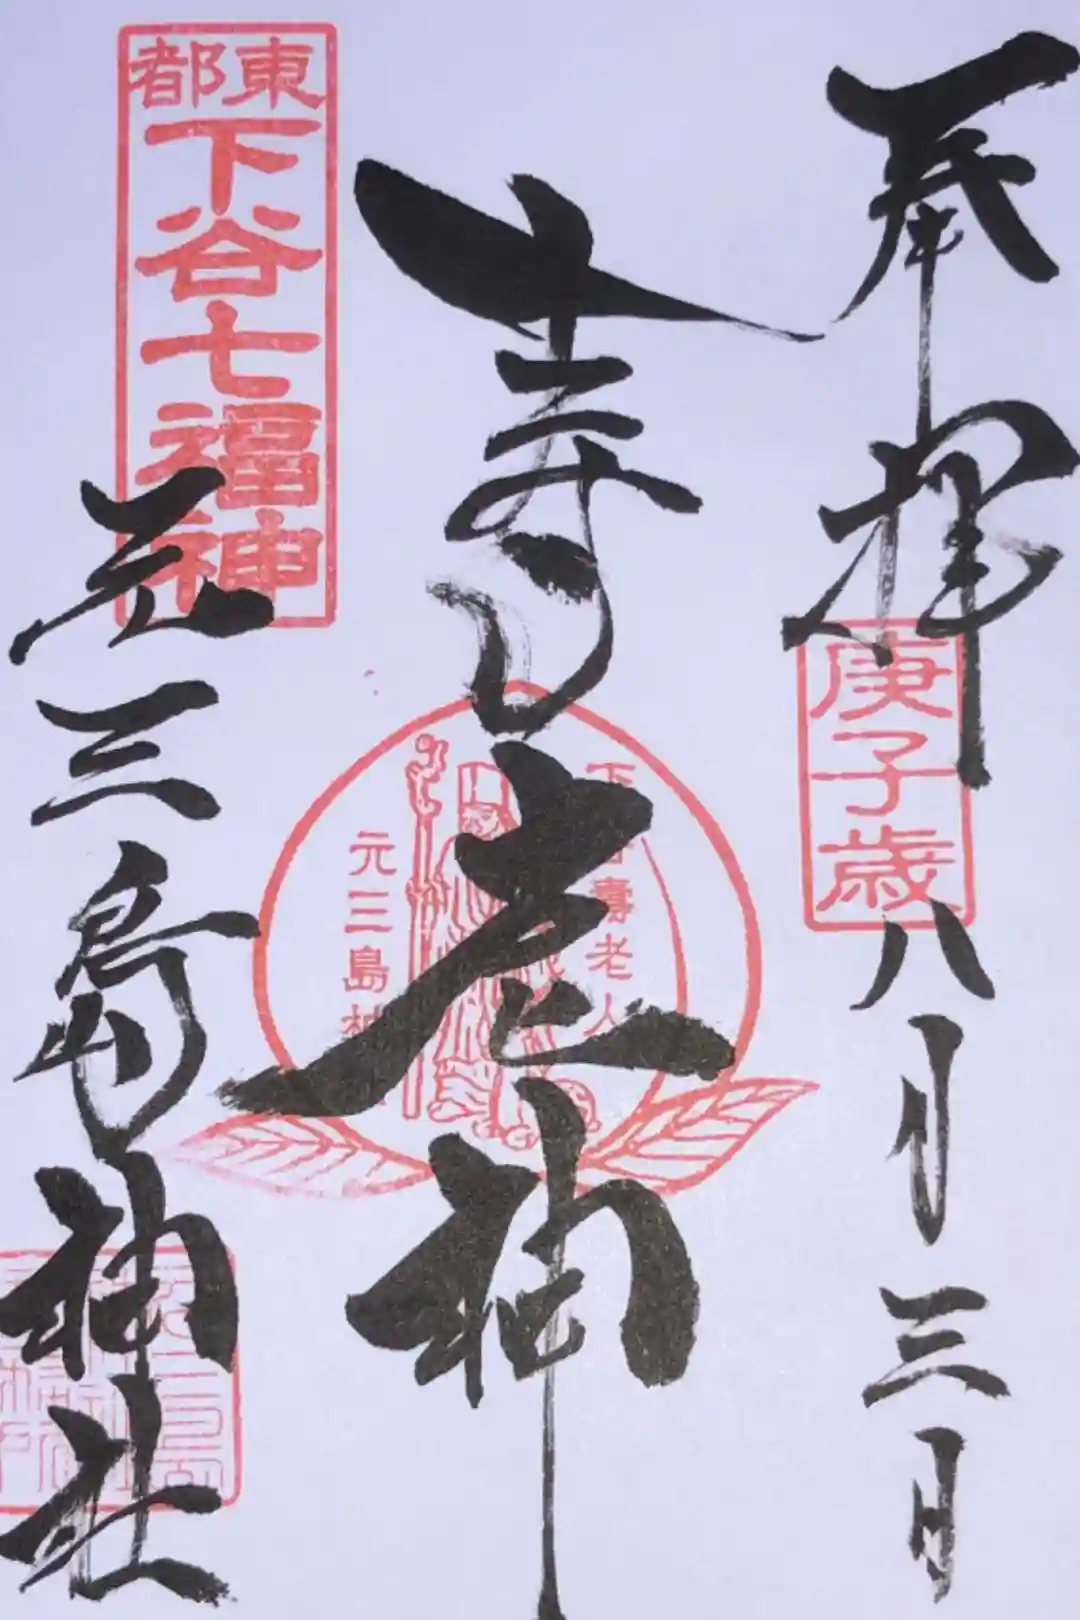 奉拝
庚子歳
八月三日
寿老神
下谷寿老人
元三島神
東都
下谷七福神
元三島神社